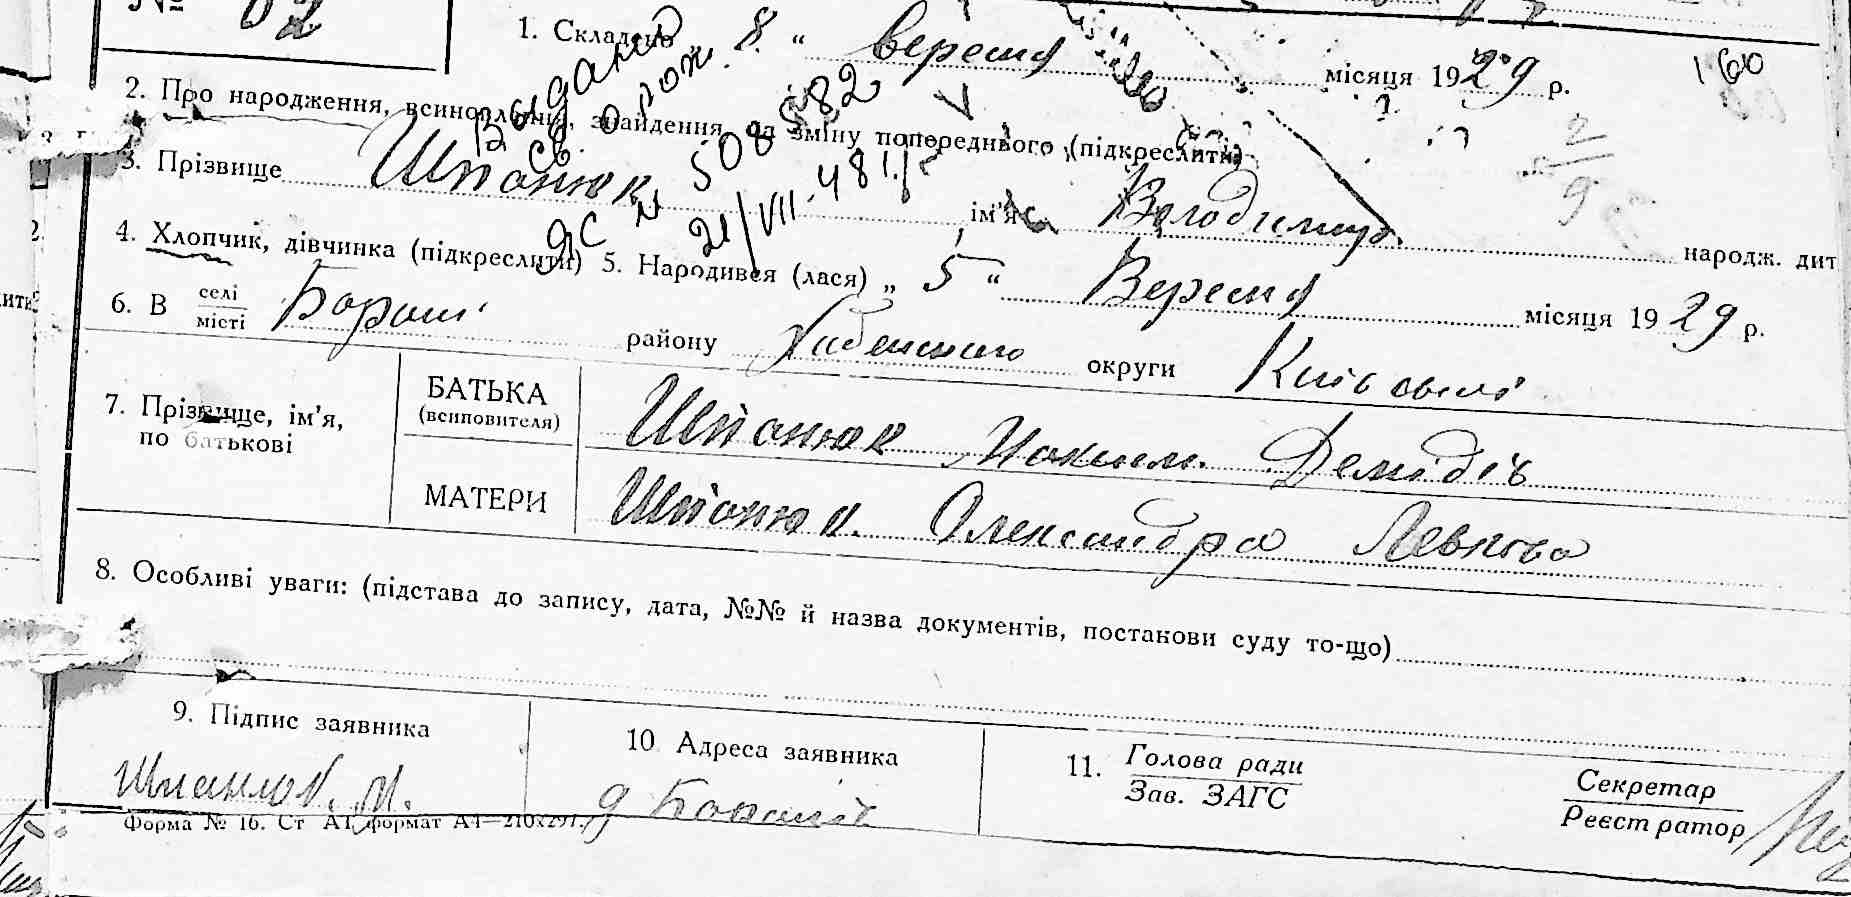 № 62
1. Складено „ 8 “ вересня місяця 1929 р. 160
2. Про народження, всиновлення, знайдення, за зміну попереднього (підкреслити)
Видано
св. о рож.
ЯС № 508582
21/VII.48
3. Прізвище Шпанюк ім'я Володимир народж. дит
4. Хлопчик, дівчинка (підкреслити) 5. Народився (лася) „ 5 “ Вересня місяця 1929 р.
6. В селі місті району Хабенського округи
7. Прізвище, ім'я, по батькові
БАТЬКА (всиновителя) Шпанюк Максим Демидів
МАТЕРИ Шпанюк Олександра Левкова
8. Особливі уваги: (підстава до запису, дата, №№ й назва документів, постанови суду то-що)
9. Підпис заявника
10 Адреса заявника
11. Голова ради
Зав. ЗАГС
Секретар
Реєстратор
Шпанюк. М.
Форма № 16. Ст А4 формат А4—210х297.